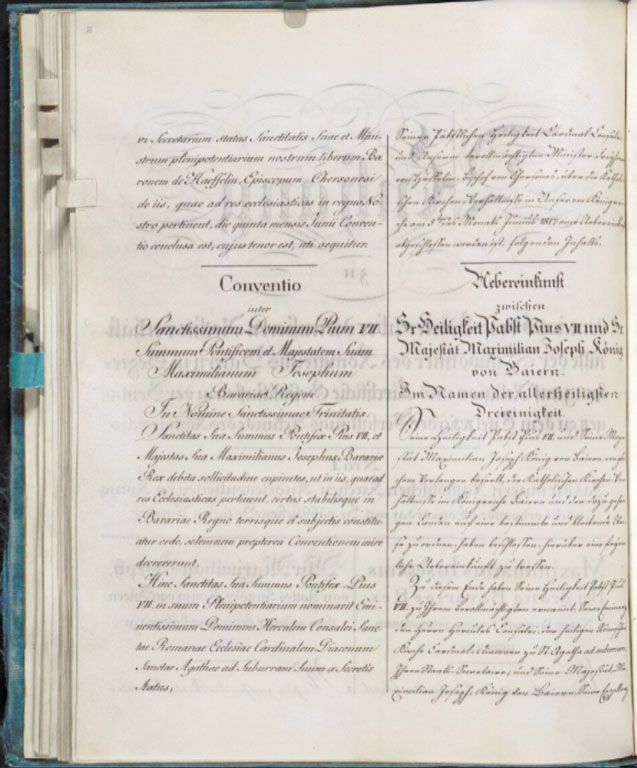 vi Secretarium status Sanctitatis Suae et Mini-
strum plenipotentiarium nostrum liberum Ba
ronem de Haeffelin, Episcopum Chersonesi
de iis, quae ad res ecclesiasticas in regno No-
stro pertinent, die quinta mensis Junii Conven-
tio conclusa est, cujus tenor est, uti sequitur.
Conventio
inter
Sanctissimum Dominum Pium VII.
Summum Pontificem et Majestatem Suam
Maximilianum Josephum
Bavariae Regem
In Nomine Sanctissimae Trinitatis.
Sanctitas Sua Summus Pontifex Pius VII, et
Majestas Sua Maximilianus Josephus Bavariae
Rex debita sollicitudine cupientes, ut in iis, quae ad
res Ecclesiasticas pertinent certus stabilisque in
Bavariae Regno terrisque ei subjectis constitu-
atur ordo, solemnem propterea Conventionem inire
decreverunt.
Hinc Sanctitas Sua Summus Pontifex Pius
VII. in suum Plenipotentiarium nominavit Emi-
nentissimum Dominum Herculem Consalvi Sanc-
tae Romanae Ecclesiae Cardinalem Diaconum
Sanctae Agathae ad Suburram Suum a Secretis
Status;
Seiner Päbstlichen Heiligkeit Cardinal Consalvi
und Unserem bevollmächtigten Minister Freiherrn
von Häffelin, Bischof von Chersones, über die Katholi-
schen Kirchen Verhältnisse in Unserem Königrei-
che am 5ten des Monats Junius 1817 eine Uebereinkunft
abgeschlossen worden ist, folgenden Inhalts:
Uebereinkunft
zwischen
Sr Heiligkeit Pabst Pius VII und Sr
Majestät Maximilian Joseph König
von Baiern.
Im Namen der allerheiligsten
Dreieinigkeit.
Seine Heiligkeit Pabst Pius VII. und Seine Maje-
stät Maximilian Joseph König von Baiern
Verlangen beseelt, der Katholischen Kirchen Ver-
hältnisse im Königreiche Baiern und den dazu gehöri-
gen Landen auf eine bestimmte und bleibende Wei-
se zu ordnen, haben beschlossen, hierüber eine feyer-
liche Uebereinkunft zu treffen.
Zu diesem Ende haben Seine Heiligkeit Pabst Pius
VII. zu Ihrem Bevollmächtigten ernannt Seine Eminenz
den Herrn Hercules Consalvi, der heiligen Römischen
Kirche Cardinal Diacon zu St Agatha ad suburram
Ihren Staats Secretaire, und Seine Majestät Ma-
ximilian Joseph König von Baiern Seine Excellenz